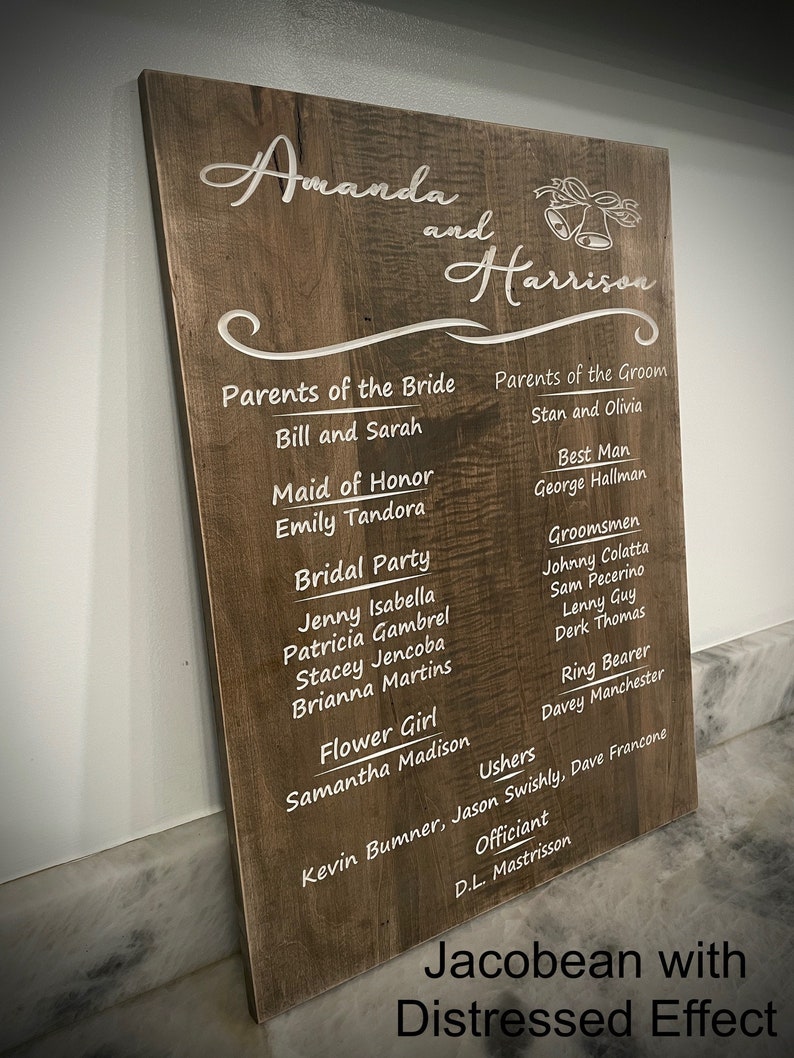 Amanda
and
Harrison
Parents of the Bride
Bill and Sarah
Maid of Honor
Emily Tandora
Bridal Party
Jenny Isabella
Patricia Gambrel
Stacey Jencoba
Brianna Martins
Flower Girl
Samantha Madison
Parents of the Groom
Stan and Olivia
Best Man
George Hallman
Groomsmen
Johnny Colatta
Sam Pecerino
Lenny Guy
Derk Thomas
Ring Bearer
Davey Manchester
Ushers
Kevin Bumner, Jason Swishly, Dave Francone
Officiant
D.L. Mastrisson
Jacobean with
Distressed Effect